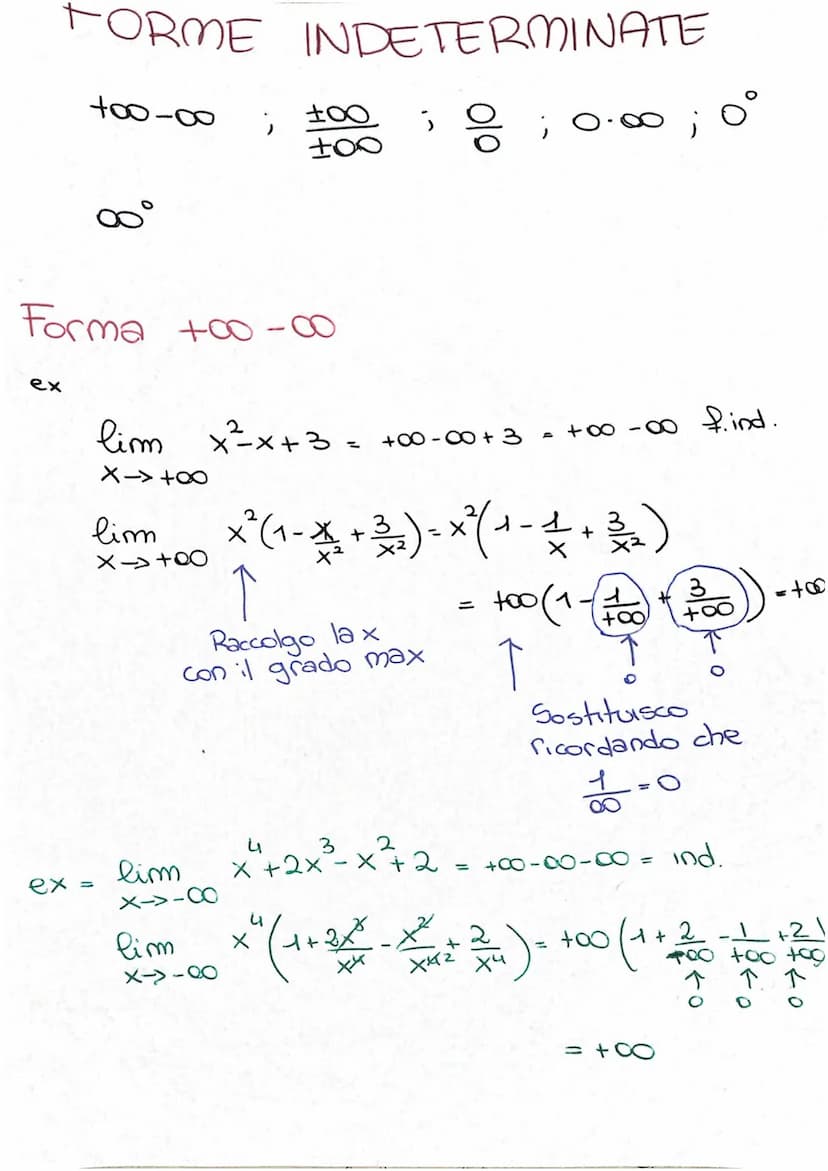 FORME INDETERMINATE
+∞-∞ ; ±∞/±∞ ; 0/0 ; 0·∞ ; 0⁰
∞⁰
Forma +∞-∞
ex
lim x²-x+3 = +∞-∞+3 = +∞-∞ f.ind.
x→+∞
lim x²(1-x/x²+3/x²)=x²(1-1/x+3/x²)
x→+∞
= +∞(1-1/+∞+3/+∞)=+∞
Raccolgo la x
con il grado max
0 0
Sostituisco
ricordando che
1/∞=0
ex = lim x⁴+2x³-x²+2 = +∞-∞-∞ = ind.
x→-∞
lim x⁴(1+2x³/x⁴-x²/x⁴²+2/x⁴)= +∞(1+2/-∞-1/+∞+2/+∞)
x→-∞
0 0 0
= +∞